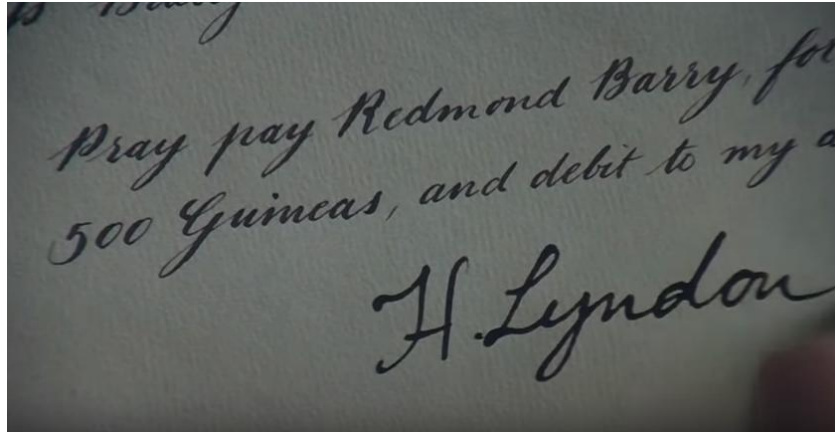 Pray pay Redmond Barry,
500 Guineas, and debit to my
H. Lyndon